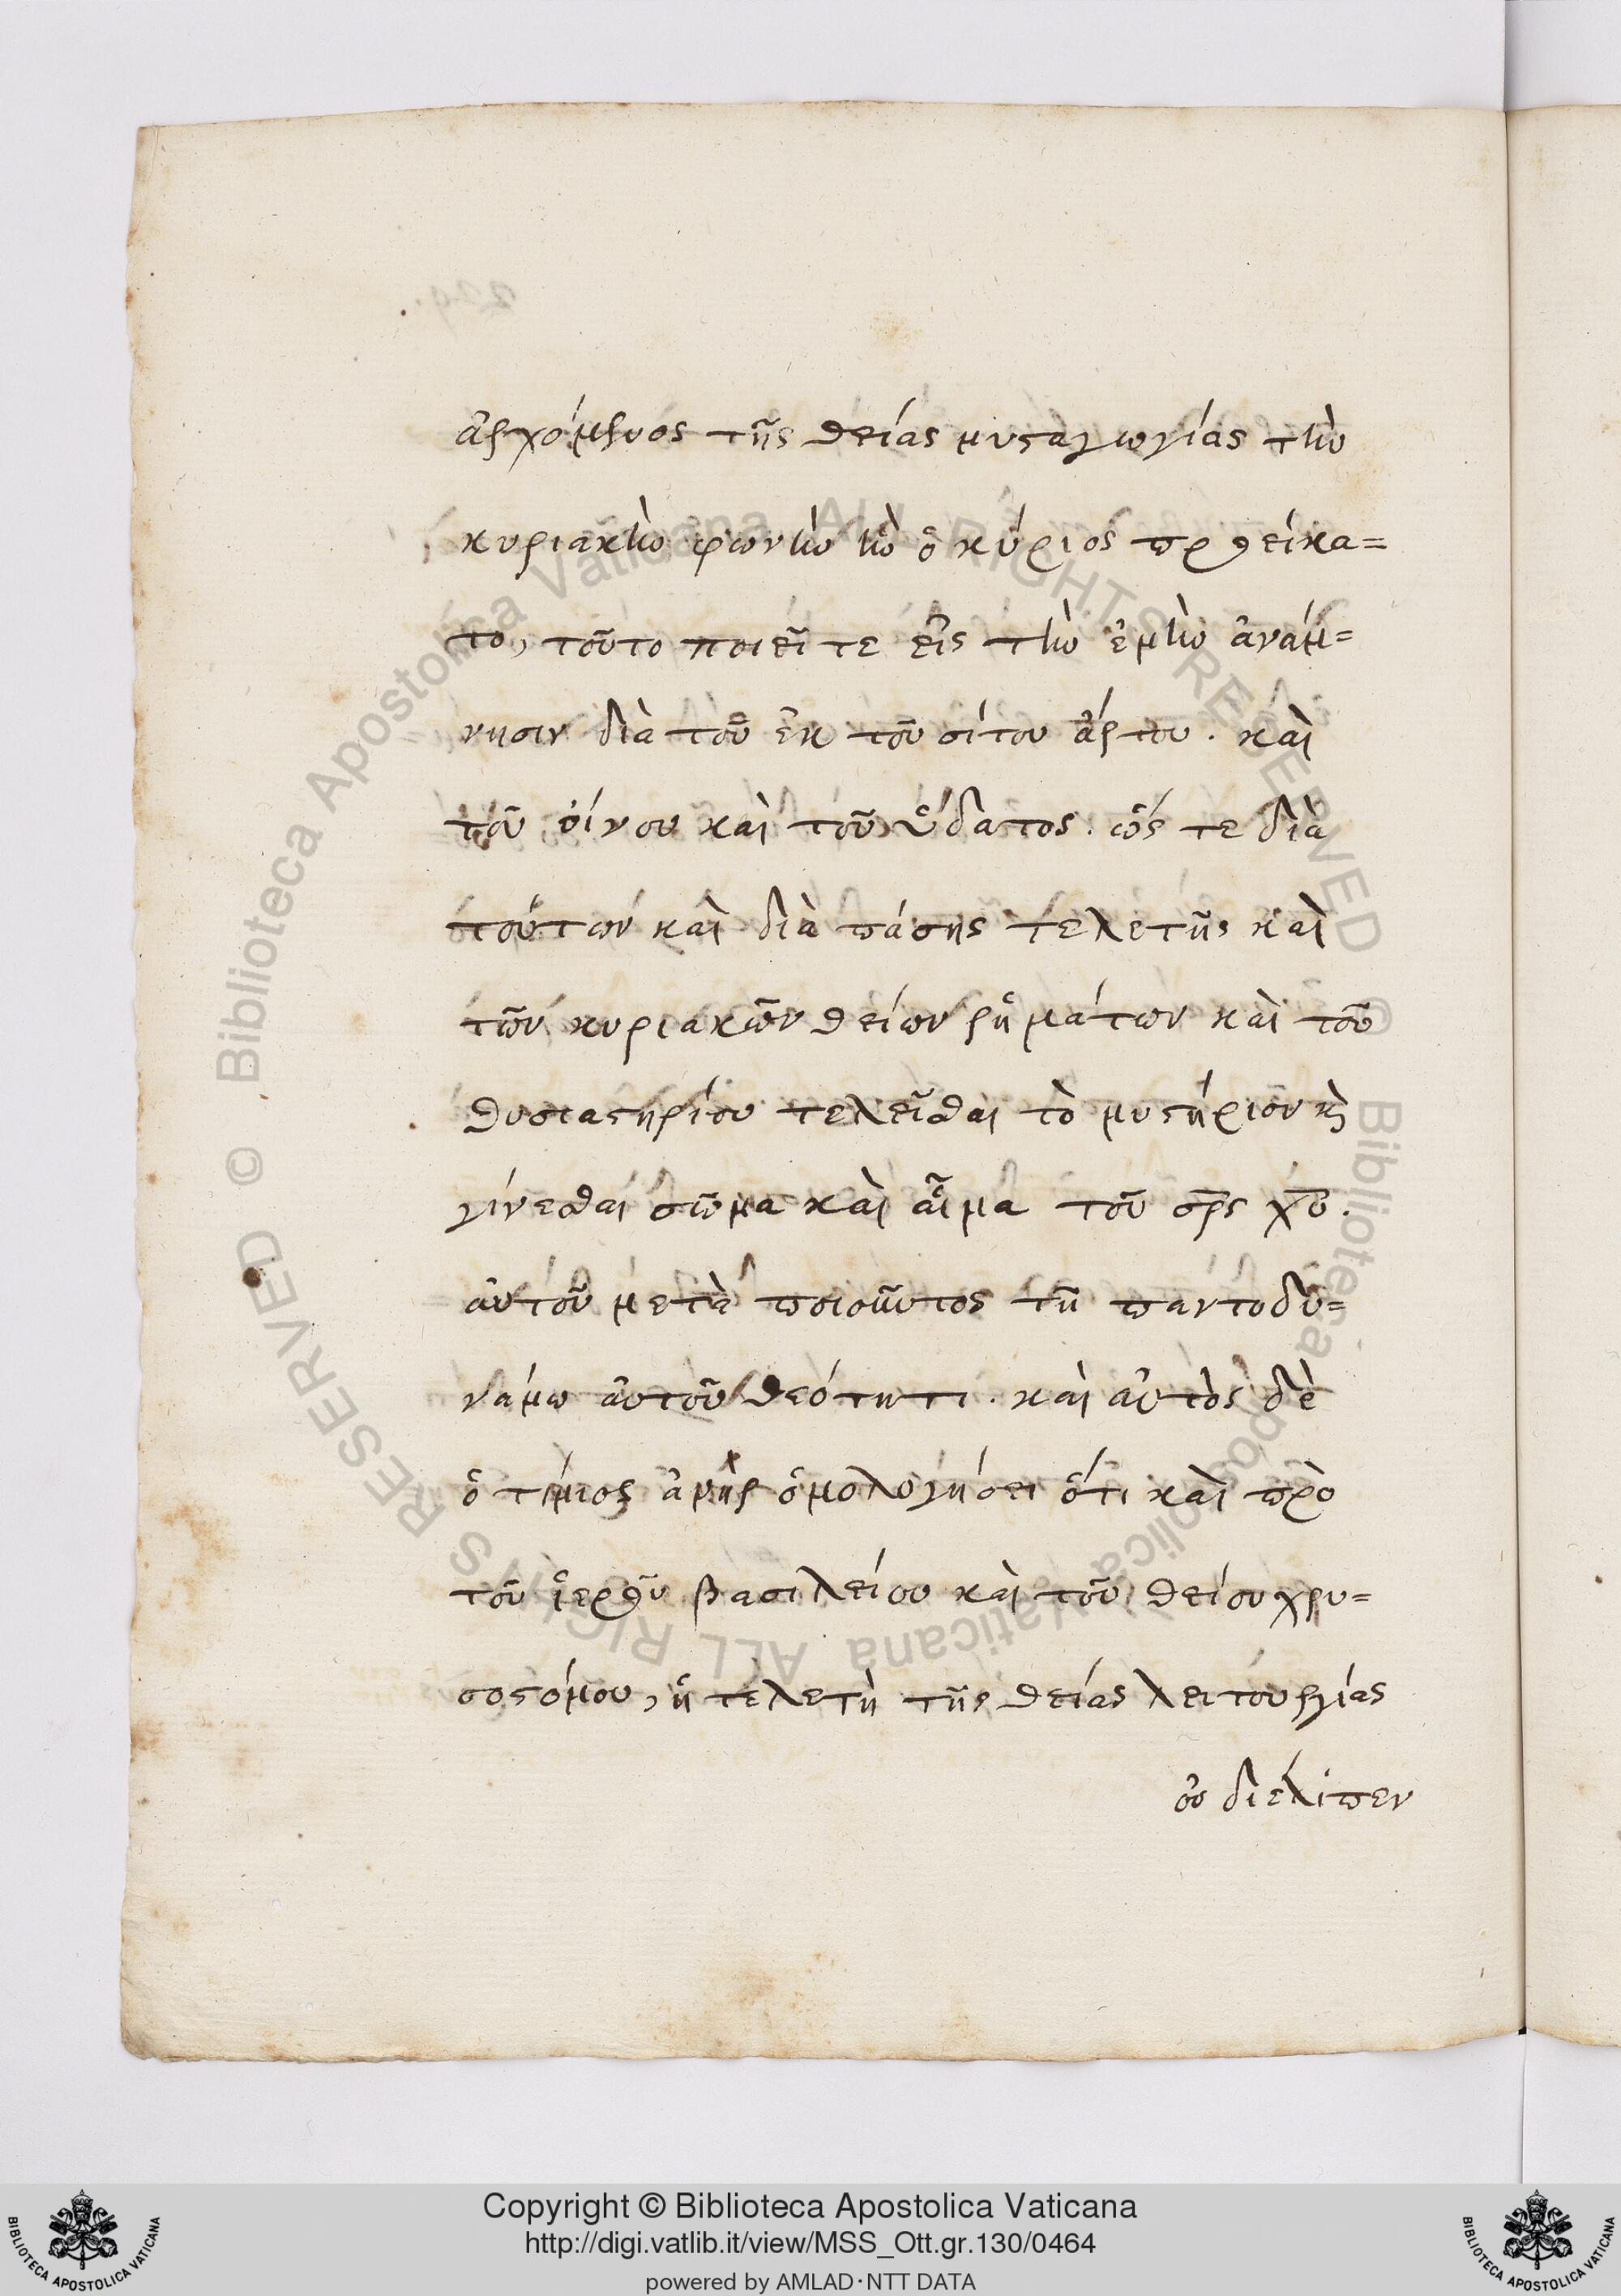 ἀρχόμενος τῆς θείας μυσταγωγίας τὴν
κυριακὴν φωνὴν ἣν ὁ κύριος προείκα=
το, τοῦτο ποιεῖτε εἰς τὴν ἐμὴν ἀνάμ=
νησιν διὰ τοῦ ἐκ τοῦ σίτου ἄρτου. καὶ
τοῦ οἴνου καὶ τοῦ ὕδατος. ὥς τε διὰ
τούτων καὶ διὰ πάσης τελετῆς καὶ
τῶν κυριακῶν θείων ῥημάτων καὶ τοῦ
θυσιαστηρίου τελεῖσθαι τὸ μυστήριον κὶ
γίνεσθαι σῶμα καὶ αἷμα τοῦ σρς χυ.
αὐτοῦ μετὰ ποιοῦντος τῆ παντοδυ=
νάμω αὐτοῦ θεότητι. καὶ αὐτὸς δὲ
ὁ τίμιος ἀνὴρ ὁμολογήσει ὅτι καὶ πρὸ
τοῦ ἱεροῦ βασιλείου καὶ τοῦ θείου χρυ=
σοστόμου, ἡ τελετὴ τῆς θείας λειτουργίας
οὐ διέλιπεν
Copyright © Biblioteca Apostolica Vaticana
http://digi.vatlib.it/view/MSS_Ott.gr.130/0464
powered by AMLAD·NTT DATA
BIBLIOTECA APOSTOLICA VATICANA
BIBLIOTECA APOSTOLICA VATICANA
© Biblioteca Apostolica Vaticana ALL RIGHTS RESERVED
© Biblioteca Apostolica Vaticana ALL RIGHTS RESERVED